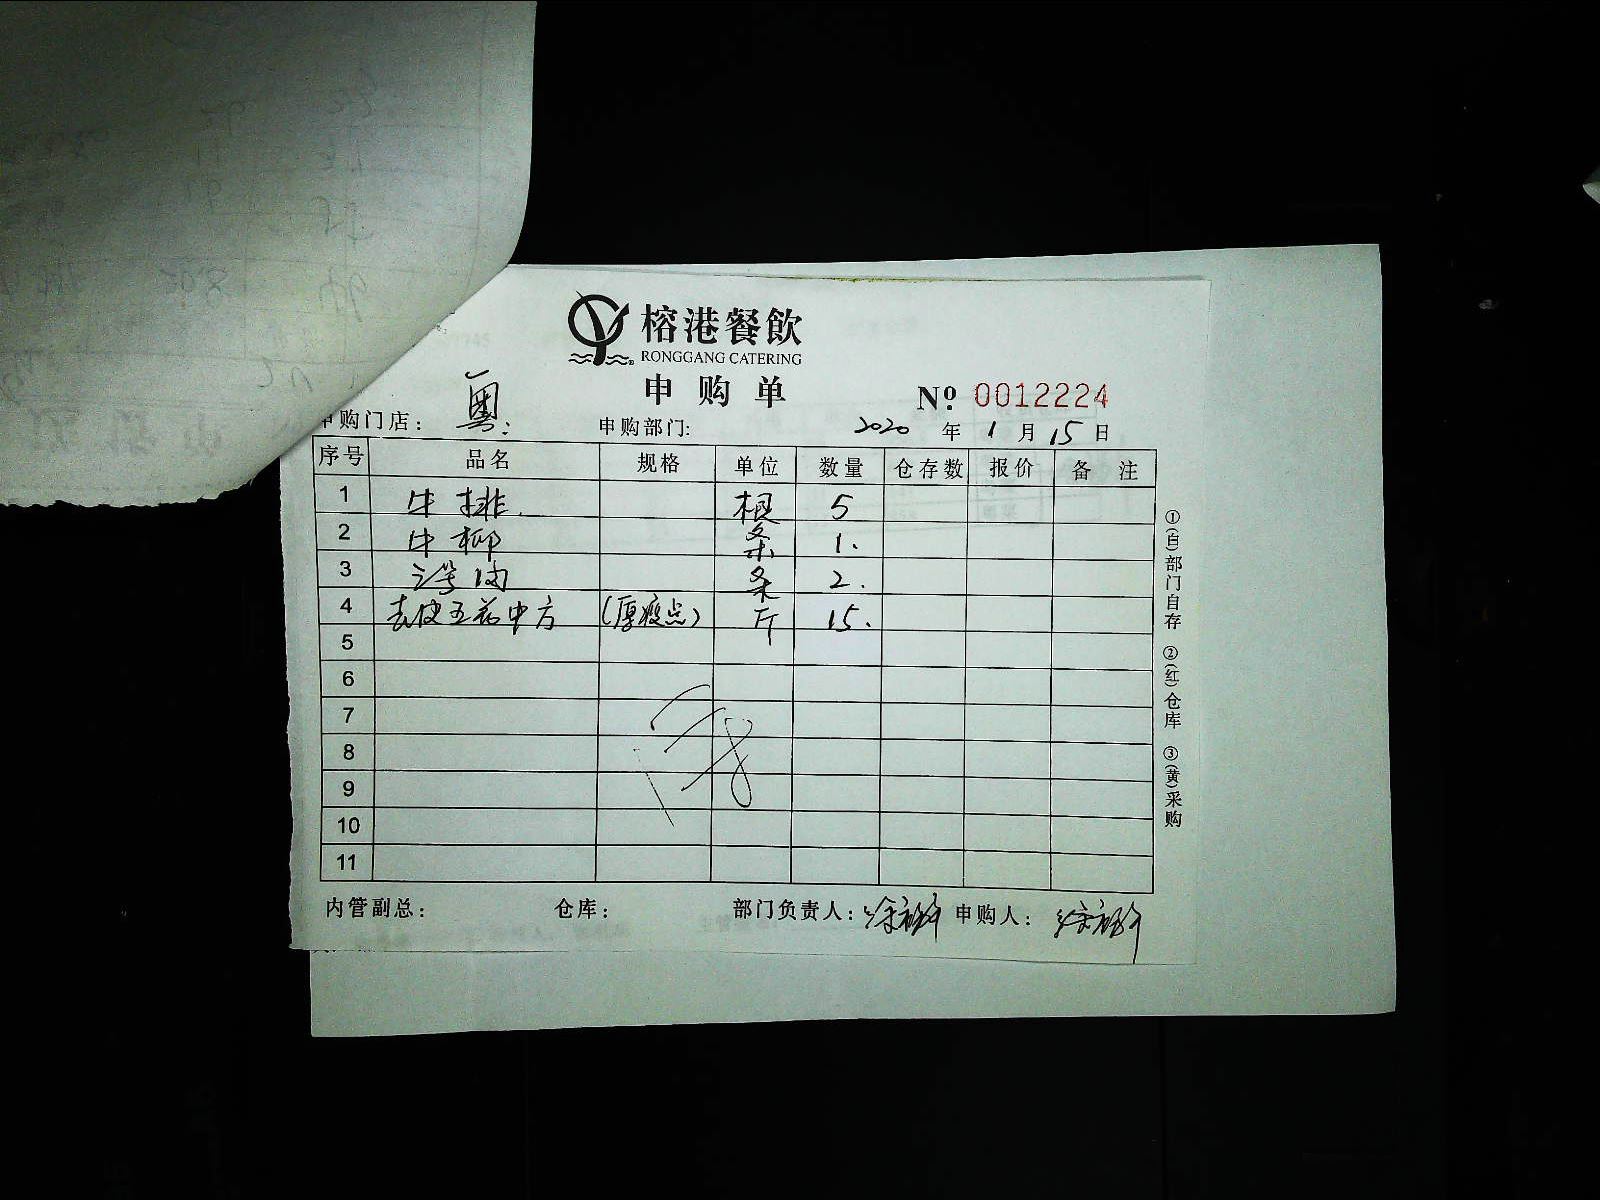 榕港餐飲
RONGGANG CATERING
申购单
№ 0012224
申购门店: 粤: 申购部门: 2020 年 1 月 15 日
序号 品名 规格 单位 数量 仓存数 报价 备 注
1 牛排. 根 5
2 牛柳 条 1.
3 肉 条 2.
4 去皮五花中方 (厚瘦点) 斤 15.
5
6
7
8
9
10
11
内管副总: 仓库: 部门负责人: 申购人:
①(白)部门自存 ②(红)仓库 ③(黄)采购